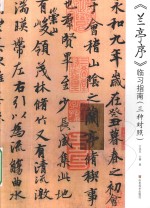 《兰亭序》
临习指南(三种对照)
永和九年歲在癸丑暮春之初會
于會稽山陰之蘭亭脩稧事
也羣賢畢至少長咸集此地
峻領茂林脩竹又有清流激
湍暎帶左右引以為流觴曲水